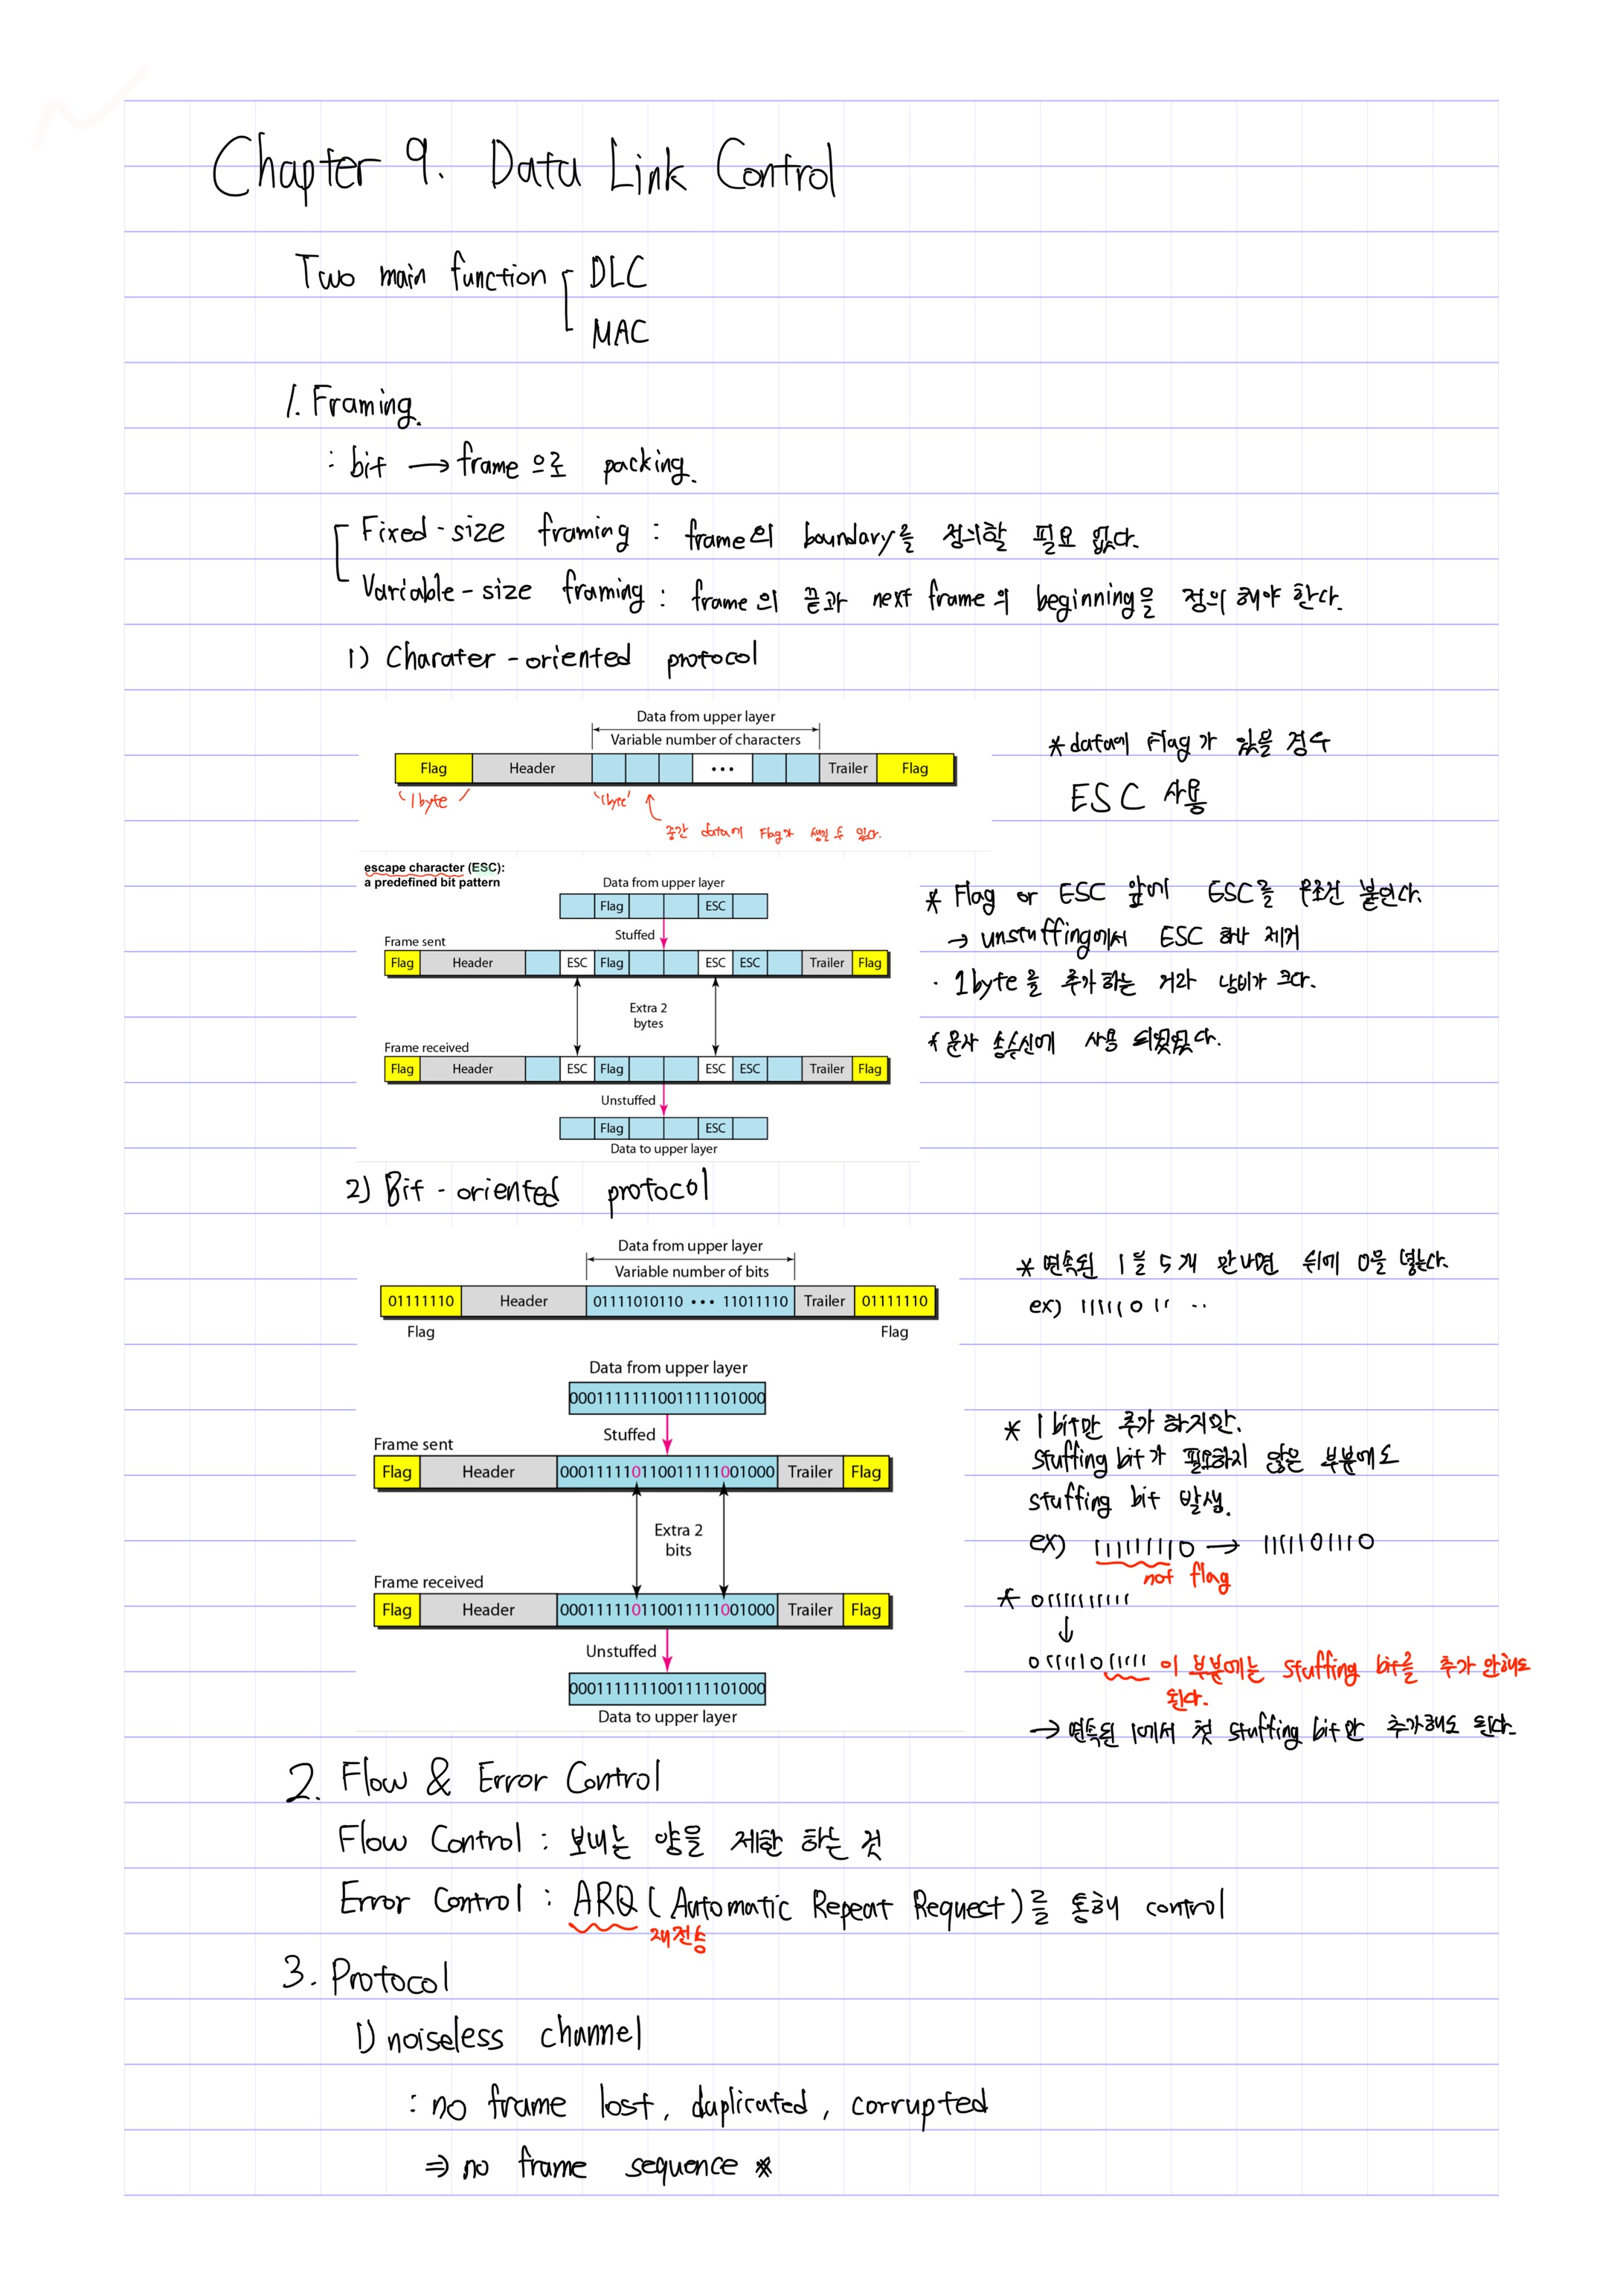 Chapter 9. Data Link Control
Two main function
DLC
MAC
1. Framing.
: bit → frame으로 packing.
Fixed-size framing : frame의 boundary를 정의할 필요 없다.
Variable-size framing : frame의 끝과 next frame의 beginning을 정의해야 한다.
1) Charater-oriented protocol
Data from upper layer
Variable number of characters
Flag Header ••• Trailer Flag
1byte 1byte
중간 data에 Flag가 생길 수 있다.
* data에 Flag가 있을 경우
ESC 사용
escape character (ESC):
a predefined bit pattern
Data from upper layer
Flag ESC
Stuffed
Frame sent
Flag Header ESC Flag ESC ESC Trailer Flag
Extra 2
bytes
Frame received
Flag Header ESC Flag ESC ESC Trailer Flag
Unstuffed
Flag ESC
Data to upper layer
* Flag or ESC 앞에 ESC를 무조건 붙인다.
→ unstuffing에서 ESC 하나 제거
· 1byte를 추가하는 거라 낭비가 크다.
* 문자 송수신에 사용 되었었다.
2) Bit-oriented protocol
Data from upper layer
Variable number of bits
01111110 Header 01111010110 ••• 11011110 Trailer 01111110
Flag Flag
* 연속된 1을 5개 만나면 뒤에 0을 넣는다.
ex) 11111011 ..
Data from upper layer
0001111111001111101000
Stuffed
Frame sent
Flag Header 000111110110011111001000 Trailer Flag
Extra 2
bits
Frame received
Flag Header 000111110110011111001000 Trailer Flag
Unstuffed
0001111111001111101000
Data to upper layer
* 1bit만 추가 하지만.
stuffing bit가 필요하지 않은 부분에도
stuffing bit 발생.
ex) 1111111110 → 1111101110
not flag
* 01111111111
↓
011111011111 이 부분에는 stuffing bit를 추가 안해도
된다.
→ 연속된 1에서 첫 stuffing bit만 추가해도 된다.
2. Flow & Error Control
Flow Control : 보내는 양을 제한 하는 것
Error Control : ARQ (Automatic Repeat Request)를 통해 control
재전송
3. Protocol
1) noiseless channel
: no frame lost, duplicated, corrupted
⇒ no frame sequence *